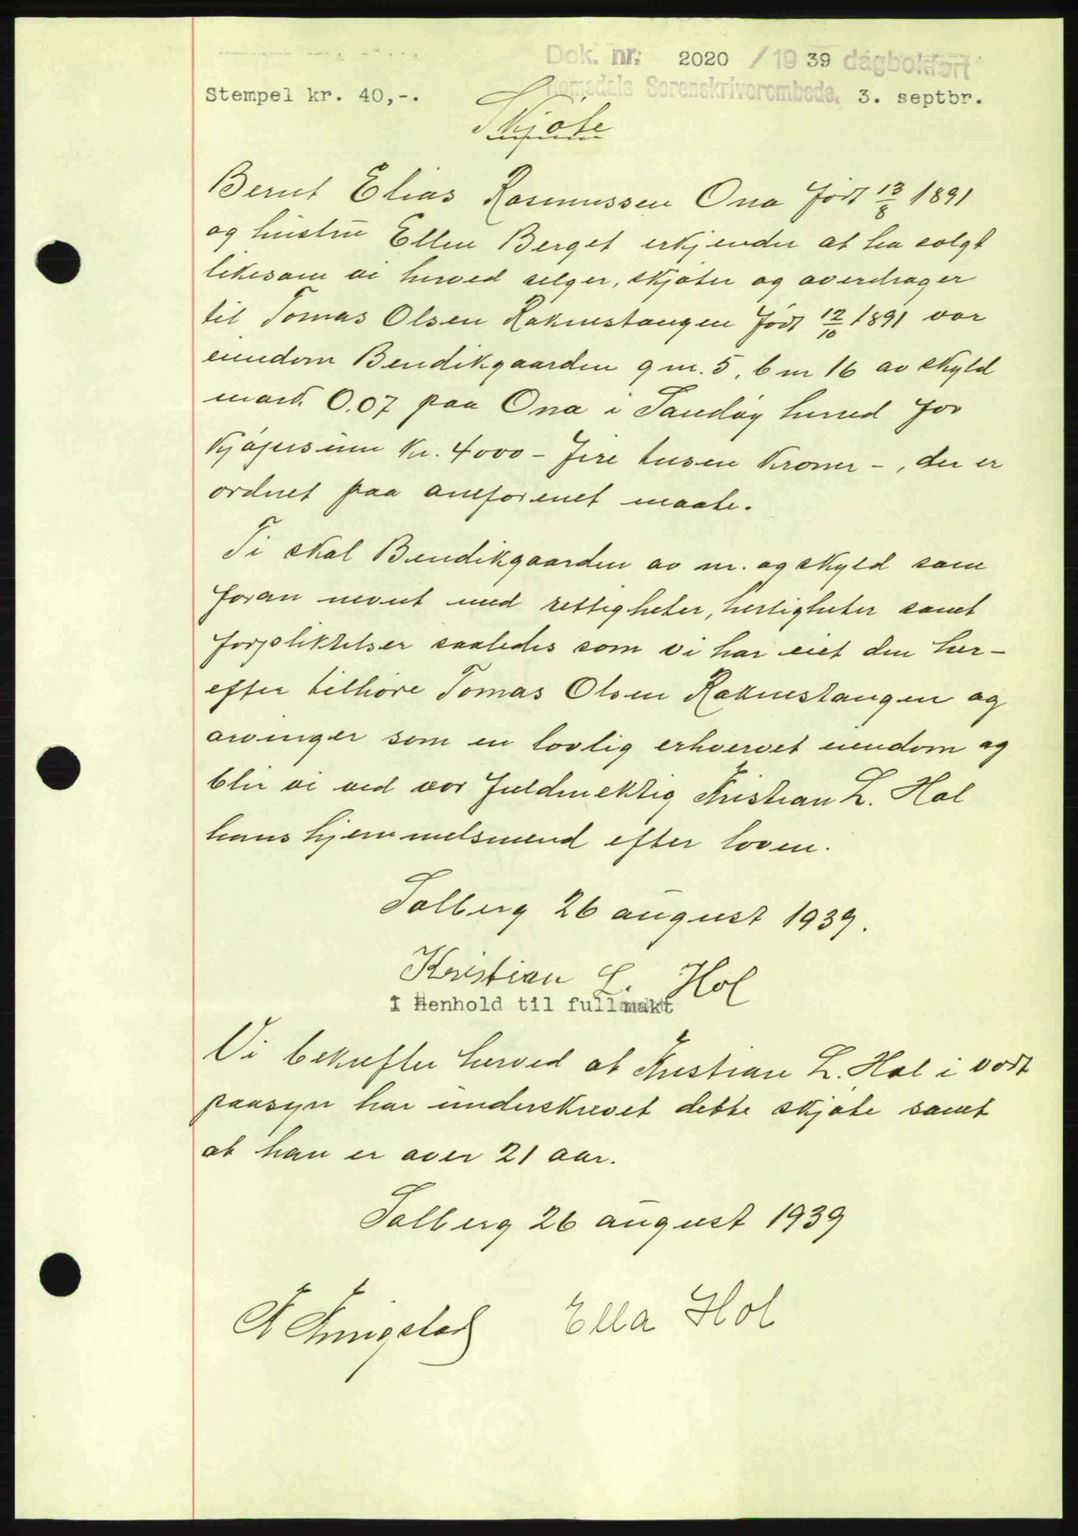 Dok. nr. 2020 / 1939 dagbokført
Stempel kr. 40,-. Romsdals Sorenskriverembede, 3. septbr.
Skjøte
Bernt Elias Rasmussen Ona født 13/8 1891
og hustru Ellen Berget erkjender at ha solgt
likesom vi herved selger, skjøter og overdrager
til Tomas Olsen Raknestangen født 12/10 1891 vor
eiendom Bendikgaarden g nr. 5, b nr 16 av skyld
mark 0.07 paa Ona i Sandøy herred for
kjøpesum kr. 4000 - fire tusen kroner -, der er
ordnet paa omforenet maate.
Ti skal Bendikgaarden av nr. og skyld som
foran nevnt med rettigheter, herligheter samt
forpliktelser saaledes som vi har eiet den her-
efter tilhøre Tomas Olsen Raknestangen og
arvinger som en lovlig erhvervet eiendom og
blir vi ved vor fuldmektig Kristian L. Hol
hans hjemmelsmend efter loven.
Solberg 26 august 1939.
Kristian L. Hol
I Henhold til fullmakt
Vi bekrefter herved at Kristian L. Hol i vort
paasyn har underskrevet dette skjøte samt
at han er over 21 aar.
Solberg 26 august 1939
K Kringstad Ella Hol